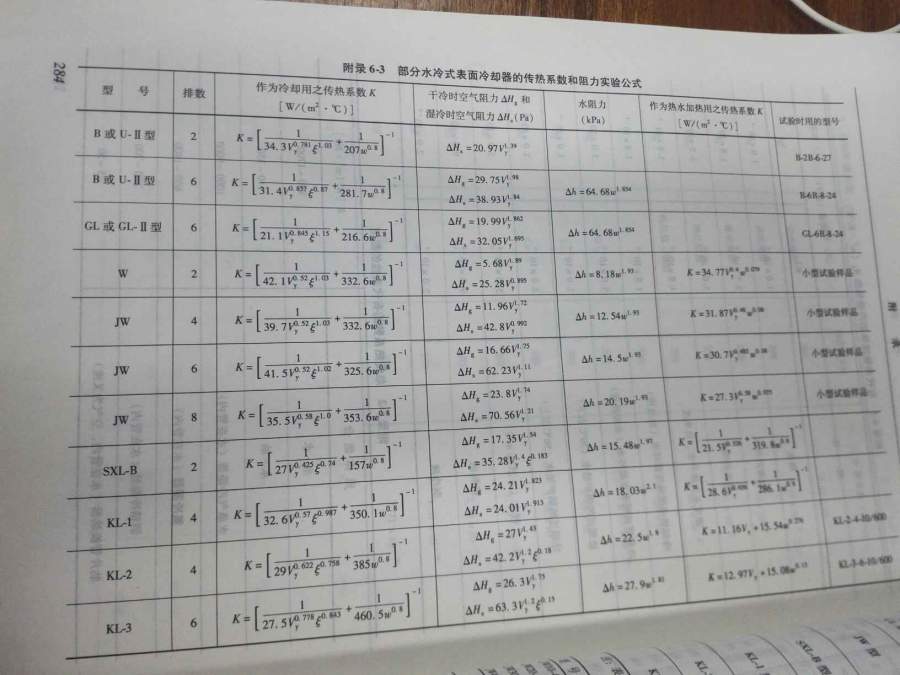 284
附录 6-3 部分水冷式表面冷却器的传热系数和阻力实验公式
型 号 排数 作为冷却用之传热系数 K [W/(m²·℃)] 干冷时空气阻力 ΔH_g 和 湿冷时空气阻力 ΔH_s (Pa) 水阻力 (kPa) 作为热水加热用之传热系数 K [W/(m²·℃)] 试验时用的型号
B 或 U-Ⅱ型 2 K=[1/(34.3V_y^0.781 ξ^1.03)+1/(207w^0.8)]^-1 ΔH_s=20.97V_y^1.39 B-2B-6-27
B 或 U-Ⅱ型 6 K=[1/(31.4V_y^0.857 ξ^0.87)+1/(281.7w^0.8)]^-1 ΔH_g=29.75V_y^1.98 ΔH_s=38.93V_y^1.84 Δh=64.68w^1.854 B-6R-8-24
GL 或 GL-Ⅱ型 6 K=[1/(21.1V_y^0.845 ξ^1.15)+1/(216.6w^0.8)]^-1 ΔH_g=19.99V_y^1.862 ΔH_s=32.05V_y^1.695 Δh=64.68w^1.854 GL-6R-8-24
W 2 K=[1/(42.1V_y^0.52 ξ^1.03)+1/(332.6w^0.8)]^-1 ΔH_g=5.68V_y^1.89 ΔH_s=25.28V_y^0.895 Δh=8.18w^1.93 K=34.77V_y^0.4 w^0.079 小型试验样品
JW 4 K=[1/(39.7V_y^0.52 ξ^1.03)+1/(332.6w^0.8)]^-1 ΔH_g=11.96V_y^1.72 ΔH_s=42.8V_y^0.992 Δh=12.54w^1.93 K=31.87V_y^0.48 w^0.08 小型试验样品
JW 6 K=[1/(41.5V_y^0.52 ξ^1.02)+1/(325.6w^0.8)]^-1 ΔH_g=16.66V_y^1.75 ΔH_s=62.23V_y^1.11 Δh=14.5w^1.93 K=30.7V_y^0.485 w^0.08 小型试验样品
JW 8 K=[1/(35.5V_y^0.58 ξ^1.0)+1/(353.6w^0.8)]^-1 ΔH_g=23.8V_y^1.74 ΔH_s=70.56V_y^1.21 Δh=20.19w^1.93 K=27.3V_y^0.58 w^0.075 小型试验样品
SXL-B 2 K=[1/(27V_y^0.425 ξ^0.74)+1/(157w^0.8)]^-1 ΔH_g=17.35V_y^1.54 ΔH_s=35.28V_y^1.4 ξ^0.183 Δh=15.48w^1.97 K=[1/(21.5V_y^0.526)+1/(319.8w^0.8)]^-1
KL-1 4 K=[1/(32.6V_y^0.57 ξ^0.987)+1/(350.1w^0.8)]^-1 ΔH_g=24.21V_y^1.823 ΔH_s=24.01V_y^1.913 Δh=18.03w^2.1 K=[1/(28.6V_y^0.656)+1/(286.1w^0.8)]^-1
KL-2 4 K=[1/(29V_y^0.622 ξ^0.758)+1/(385w^0.8)]^-1 ΔH_g=27V_y^1.43 ΔH_s=42.2V_y^1.2 ξ^0.18 Δh=22.5w^1.8 K=11.16V_y+15.54w^0.276 KL-2-4-10/600
KL-3 6 K=[1/(27.5V_y^0.778 ξ^0.843)+1/(460.5w^0.8)]^-1 ΔH_g=26.3V_y^1.75 ΔH_s=63.3V_y^1.2 ξ^0.15 Δh=27.9w^1.81 K=12.97V_y+15.08w^0.13 KL-3-6-10/600
附 录
KL-1
SXL-B 型
JW 型